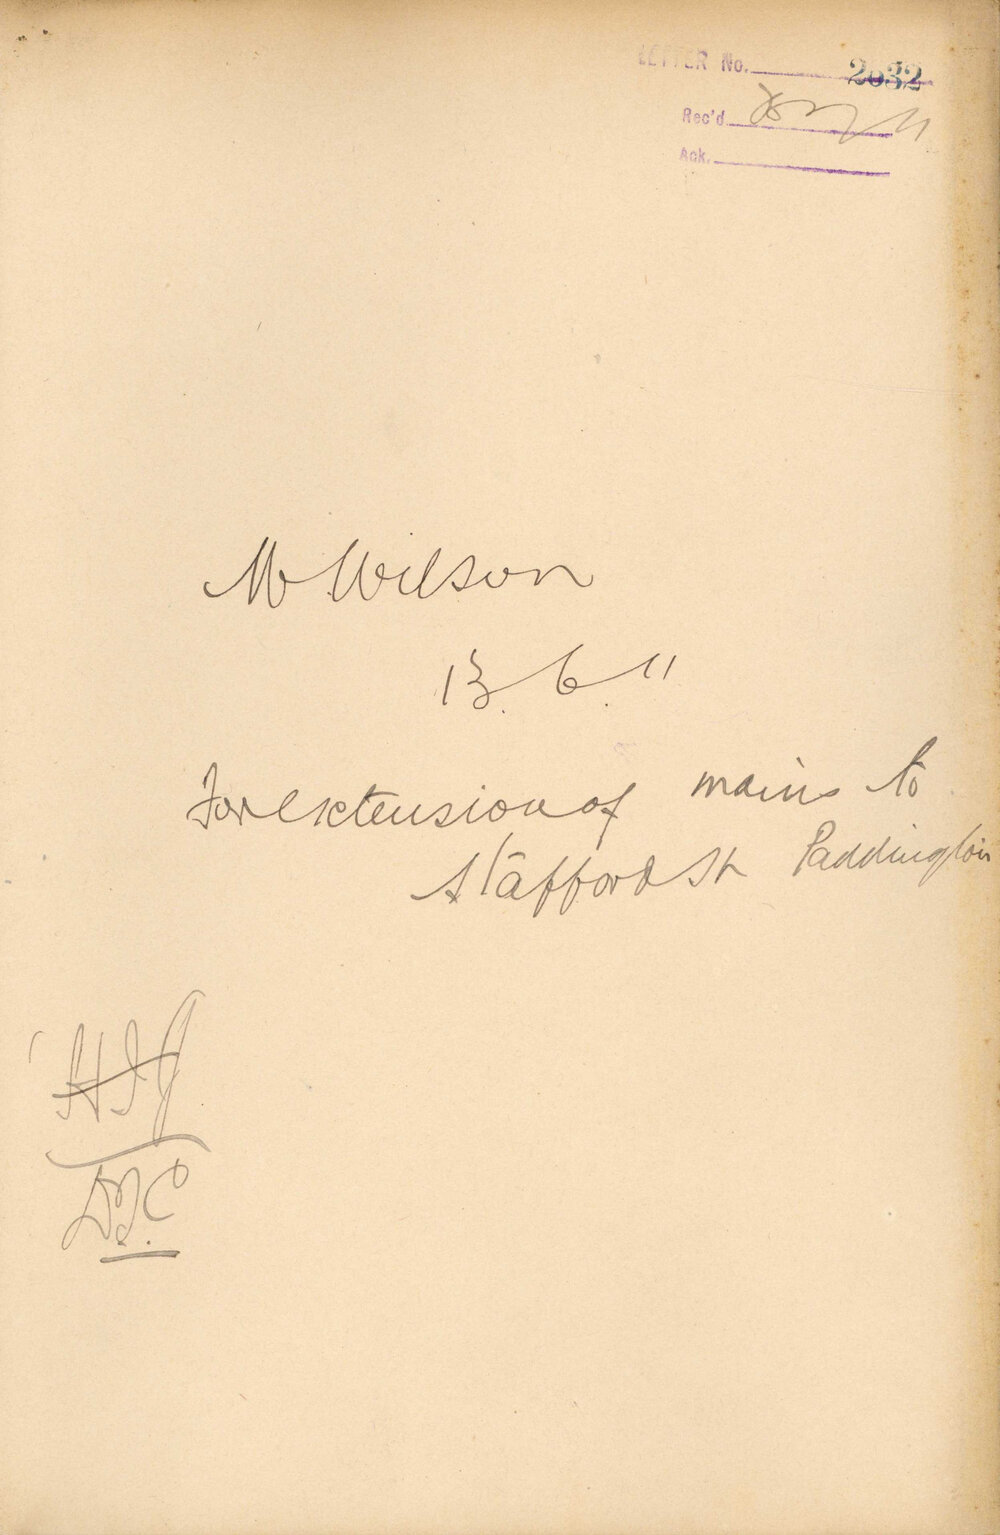 LETTER No. 2032
Rec'd
Ack.
M Wilson
13. 6. 11
For extension of mains to
Stafford St Paddington